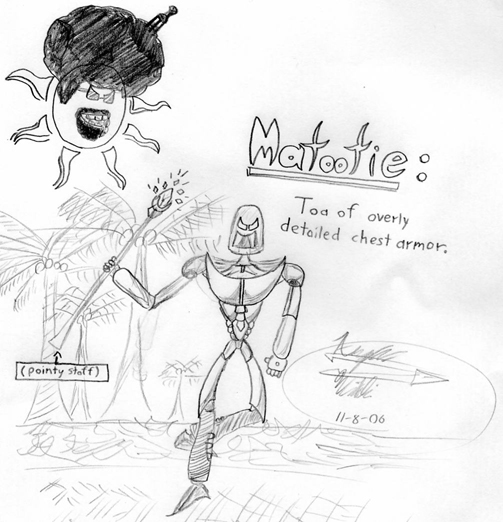 Matootie:
Toa of overly
detailed chest armor.
(pointy staff)
11-8-06